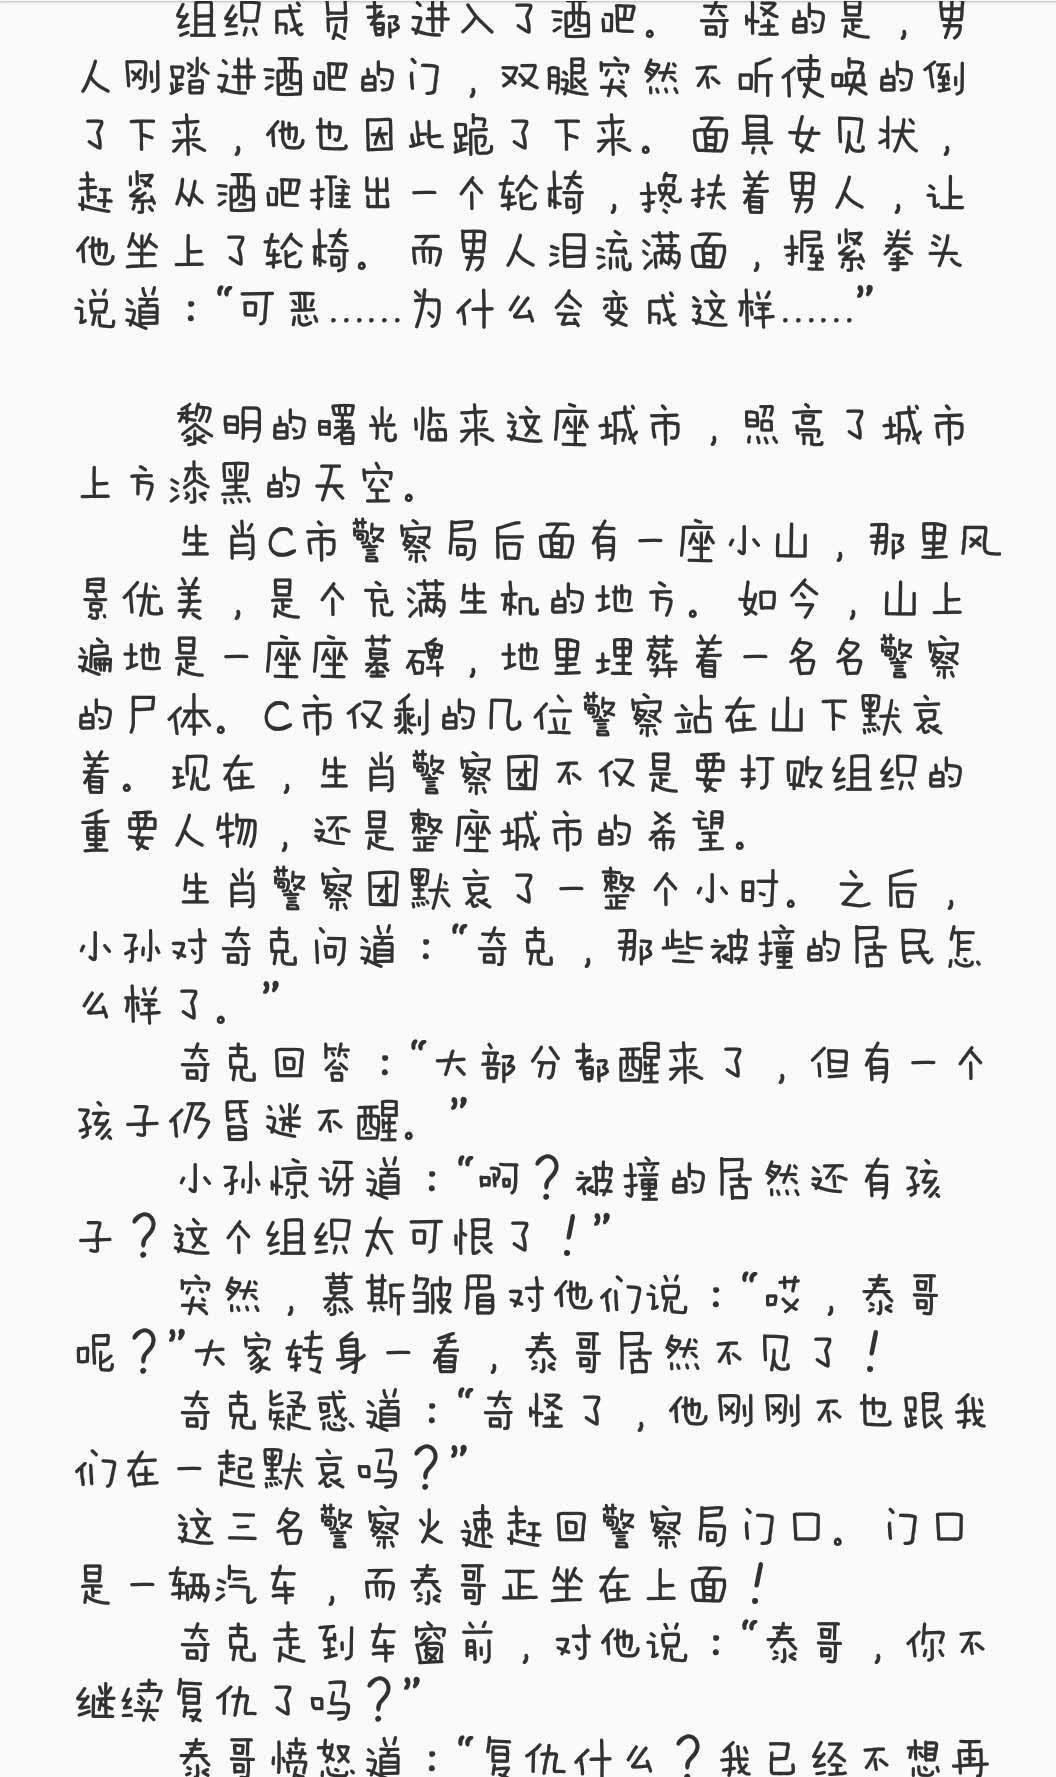 组织成员都进入了酒吧。奇怪的是，男
人刚踏进酒吧的门，双腿突然不听使唤的倒
了下来，他也因此跪了下来。面具女见状，
赶紧从酒吧推出一个轮椅，搀扶着男人，让
他坐上了轮椅。而男人泪流满面，握紧拳头
说道：“可恶……为什么会变成这样……”
黎明的曙光临来这座城市，照亮了城市
上方漆黑的天空。
生肖C市警察局后面有一座小山，那里风
景优美，是个充满生机的地方。如今，山上
遍地是一座座墓碑，地里埋葬着一名名警察
的尸体。C市仅剩的几位警察站在山下默哀
着。现在，生肖警察团不仅是要打败组织的
重要人物，还是整座城市的希望。
生肖警察团默哀了一整个小时。之后，
小孙对奇克问道：“奇克，那些被撞的居民怎
么样了。”
奇克回答：“大部分都醒来了，但有一个
孩子仍昏迷不醒。”
小孙惊讶道：“啊？被撞的居然还有孩
子？这个组织太可恨了！”
突然，慕斯皱眉对他们说：“哎，泰哥
呢？”大家转身一看，泰哥居然不见了！
奇克疑惑道：“奇怪了，他刚刚不也跟我
们在一起默哀吗？”
这三名警察火速赶回警察局门口。门口
是一辆汽车，而泰哥正坐在上面！
奇克走到车窗前，对他说：“泰哥，你不
继续复仇了吗？”
泰哥愤怒道：“复仇什么？我已经不想再